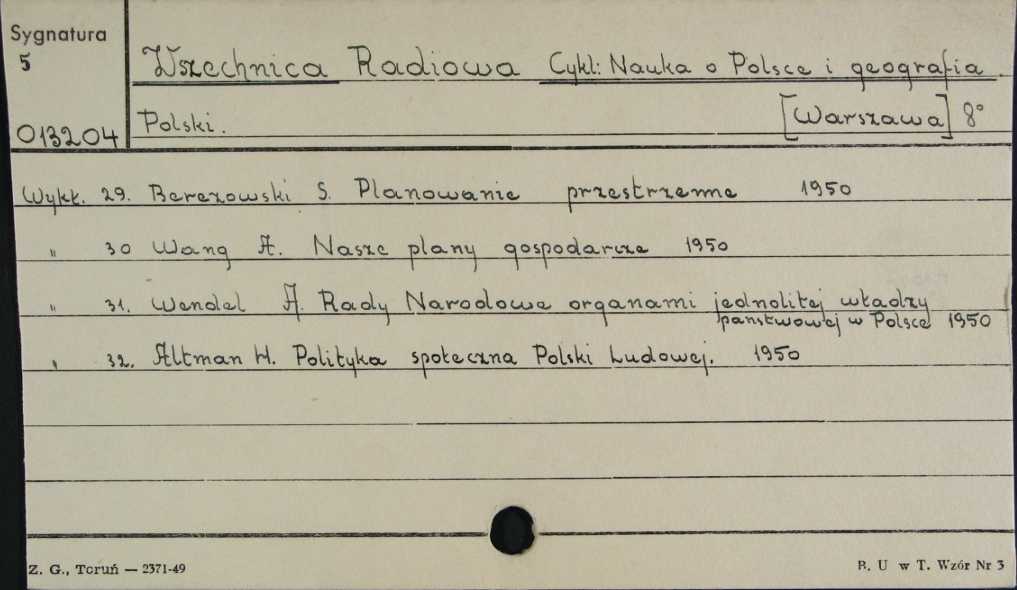 Sygnatura
5
Wszechnica Radiowa Cykl: Nauka o Polsce i geografia
013204 Polski. [Warszawa] 8°
Wykł. 29. Berezowski S. Planowanie przestrzenne 1950
" 30 Wang A. Nasze plany gospodarcze 1950
" 31. Wendel A. Rady Narodowe organami jednolitej władzy
państwowej w Polsce 1950
" 32. Altman H. Polityka społeczna Polski Ludowej. 1950
Z. G., Toruń — 2371-49
B. U w T. Wzór Nr 3